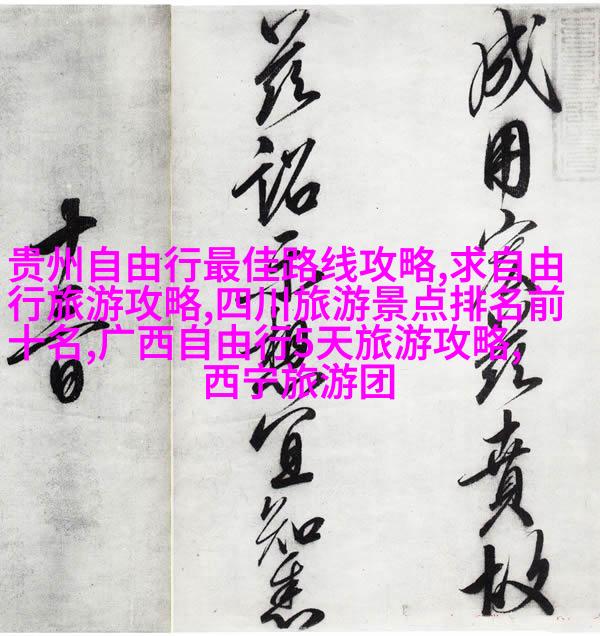 成用宏兹賁故
兹詔示想宜知悉
贵州自由行最佳路线攻略,求自由
行旅游攻略,四川旅游景点排名前
十名,广西自由行5天旅游攻略,
西宁旅游团